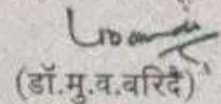 (डॉ.मु.व.वरिदे)